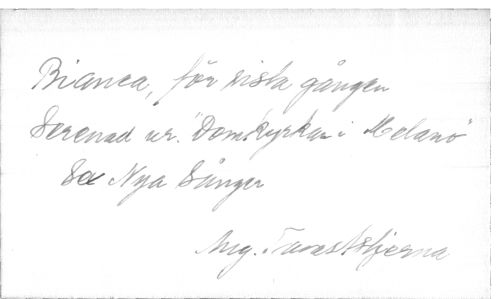 Bianca, för sista gången
Serenad ur. "Domkyrkan i Melano"
Se Nya Sånger
Aug. Tavaststjerna